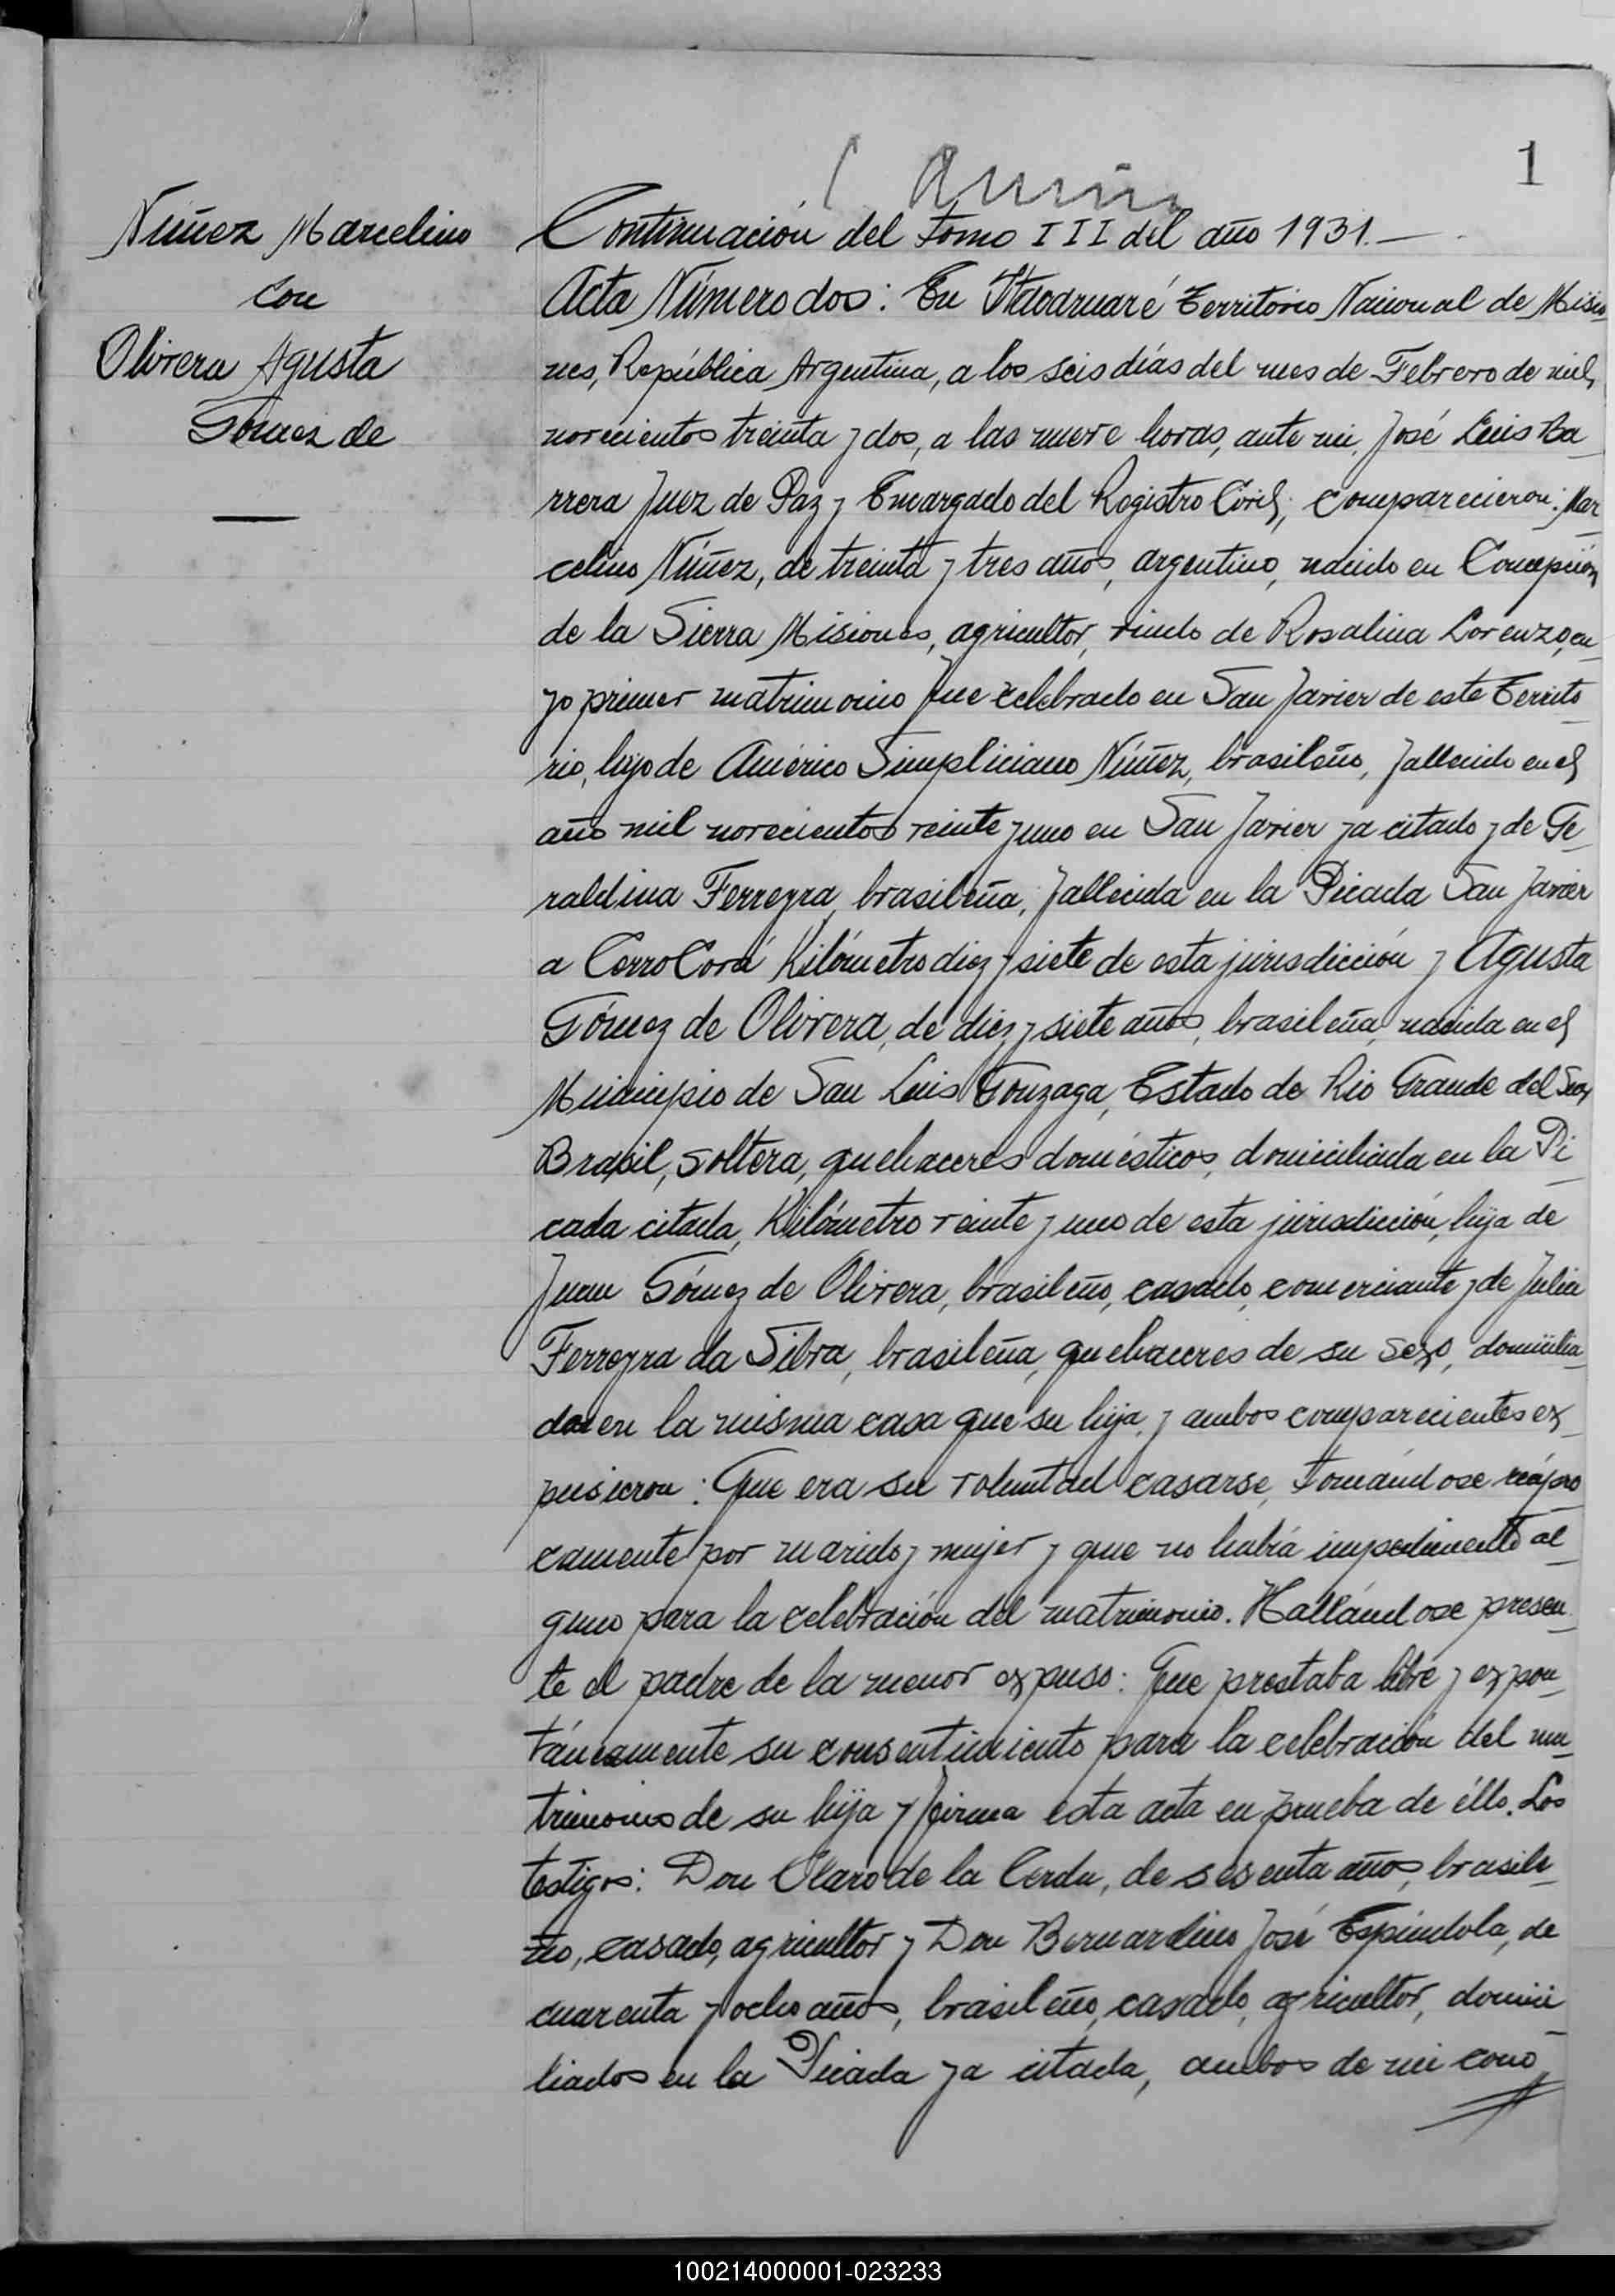 1
Núñez Marcelino
con
Olivera Agusta
Gómez de
Continuación del Tomo III del año 1931.—
Acta Número dos: En Itacaruaré Territorio Nacional de Misio
nes, República Argentina, a los seis días del mes de Febrero de mil
novecientos treinta y dos, a las nueve horas, ante mi, José Luis Ba
rrera Juez de Paz y Encargado del Registro Civil, comparecieron: Mar
celino Núñez, de treinta y tres años, argentino, nacido en Concepción
de la Sierra Misiones, agricultor, viudo de Rosalina Lorenzo, cu
yo primer matrimonio fue celebrado en San Javier de este Territo
rio, hijo de Américo Simpliciano Núñez, brasileño, fallecido en el
año mil novecientos veinte y uno en San Javier ya citado y de Ge
raldina Ferreyra, brasileña, fallecida en la Picada San Javier
a Cerro Corá Kilómetro diez y siete de esta jurisdicción y Agusta
Gómez de Olivera, de diez y siete años, brasileña, nacida en el
Municipio de San Luis Gonzaga, Estado de Rio Grande del Sur,
Brasil, soltera, quehaceres domésticos, domiciliada en la Pi
cada citada, Kilómetro veinte y uno de esta jurisdicción, hija de
Juan Gómez de Olivera, brasileño, casado, comerciante y de Julia
Ferreyra da Silva, brasileña, quehaceres de su sexo, domicilia
dos en la misma casa que su hija, y ambos comparecientes ex
pusieron: Que era su voluntad casarse, tomándose recípro
camente por marido y mujer y que no había impedimento al
guno para la celebración del matrimonio. Hallándose presen
te el padre de la menor expuso: Que prestaba libre y expon
táneamente su consentimiento para la celebración del ma
trimonio de su hija y firma esta acta en prueba de éllo. Los
testigos: Don Claro de la Cerda, de sesenta años, brasile
ño, casado, agricultor y Don Bernardino José Espíndola, de
cuarenta y ocho años, brasileño, casado, agricultor, domici
liados en la Picada ya citada, ambos de mi cono
100214000001-023233